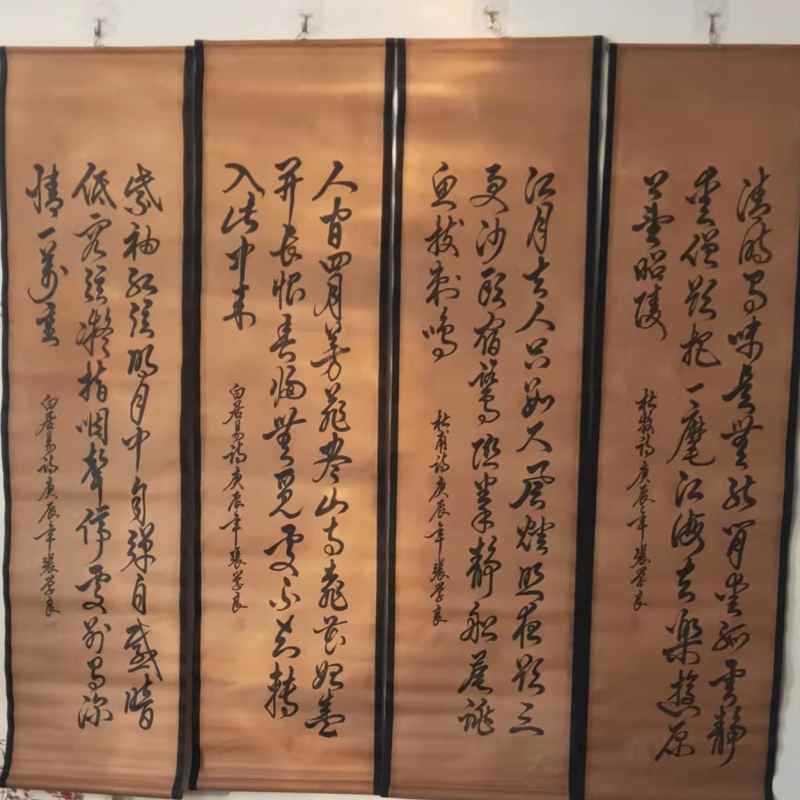 清時有味是無能閒愛孤雲靜
愛僧欲把一麾江海去樂遊原
上望昭陵
杜牧詩庚辰年張學良
江月去人只數尺風燈照夜欲三
更沙頭宿鷺聯拳靜船尾跳
魚撥刺鳴
杜甫詩庚辰年張學良
人間四月芳菲盡山寺桃花始盛
開長恨春歸無覓處不知轉
入此中來
白居易詩庚辰年張學良
紫袖紅弦明月中自彈自感暗
低容弦凝指咽聲停處別有深
情一萬重
白居易詩庚辰年張學良